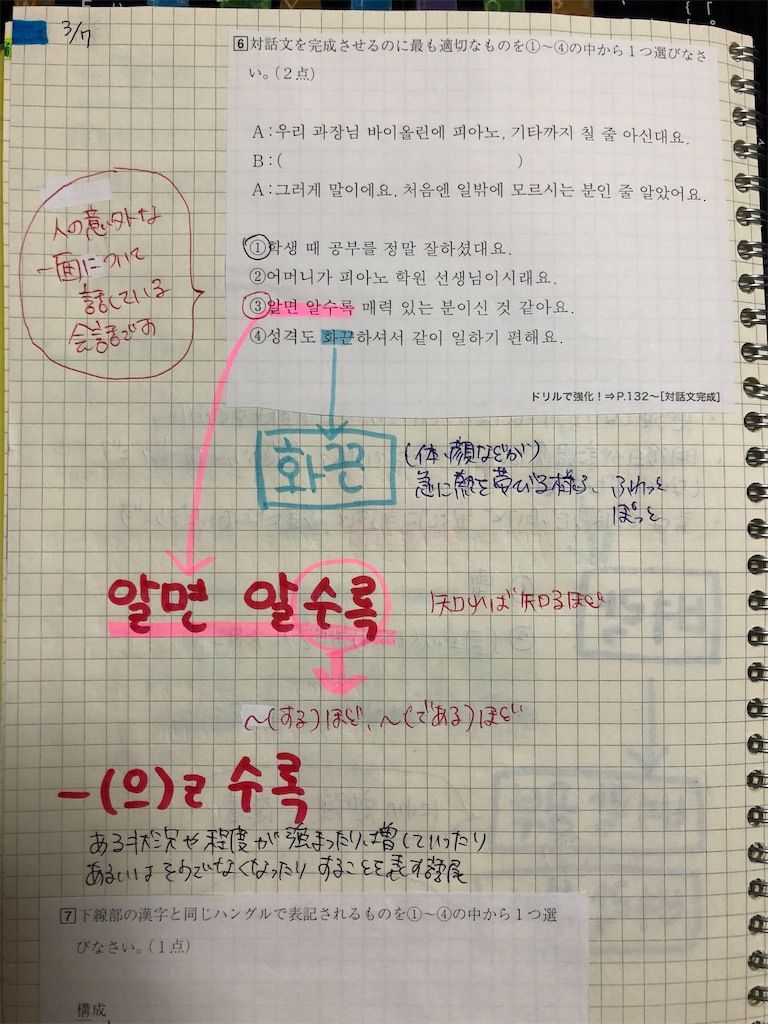 3/7
6 対話文を完成させるのに最も適切なものを①～④の中から1つ選びなさ
い。(2点)
A：우리 과장님 바이올린에 피아노, 기타까지 칠 줄 아신대요.
B：(　　　)
A：그러게 말이에요. 처음엔 일밖에 모르시는 분인 줄 알았어요.
人の意外な
一面について
話している
会話です
①학생 때 공부를 정말 잘하셨대요.
②어머니가 피아노 학원 선생님이시래요.
③알면 알수록 매력 있는 분이신 것 같아요.
④성격도 화끈하셔서 같이 일하기 편해요.
ドリルで強化!⇒P.132～[対話文完成]
화끈
(体、顔などが)
急に熱を帯びる様子、ふわっと
ぽっと
알면 알수록
知れば知るほど
～(する)ほど、～(である)ほど
-(으)ㄹ수록
ある状況や程度が強まったり、増していったり
あるいはそうでなくなったりすることを表す語尾
7 下線部の漢字と同じハングルで表記されるものを①～④の中から1つ選
びなさい。(1点)
構成